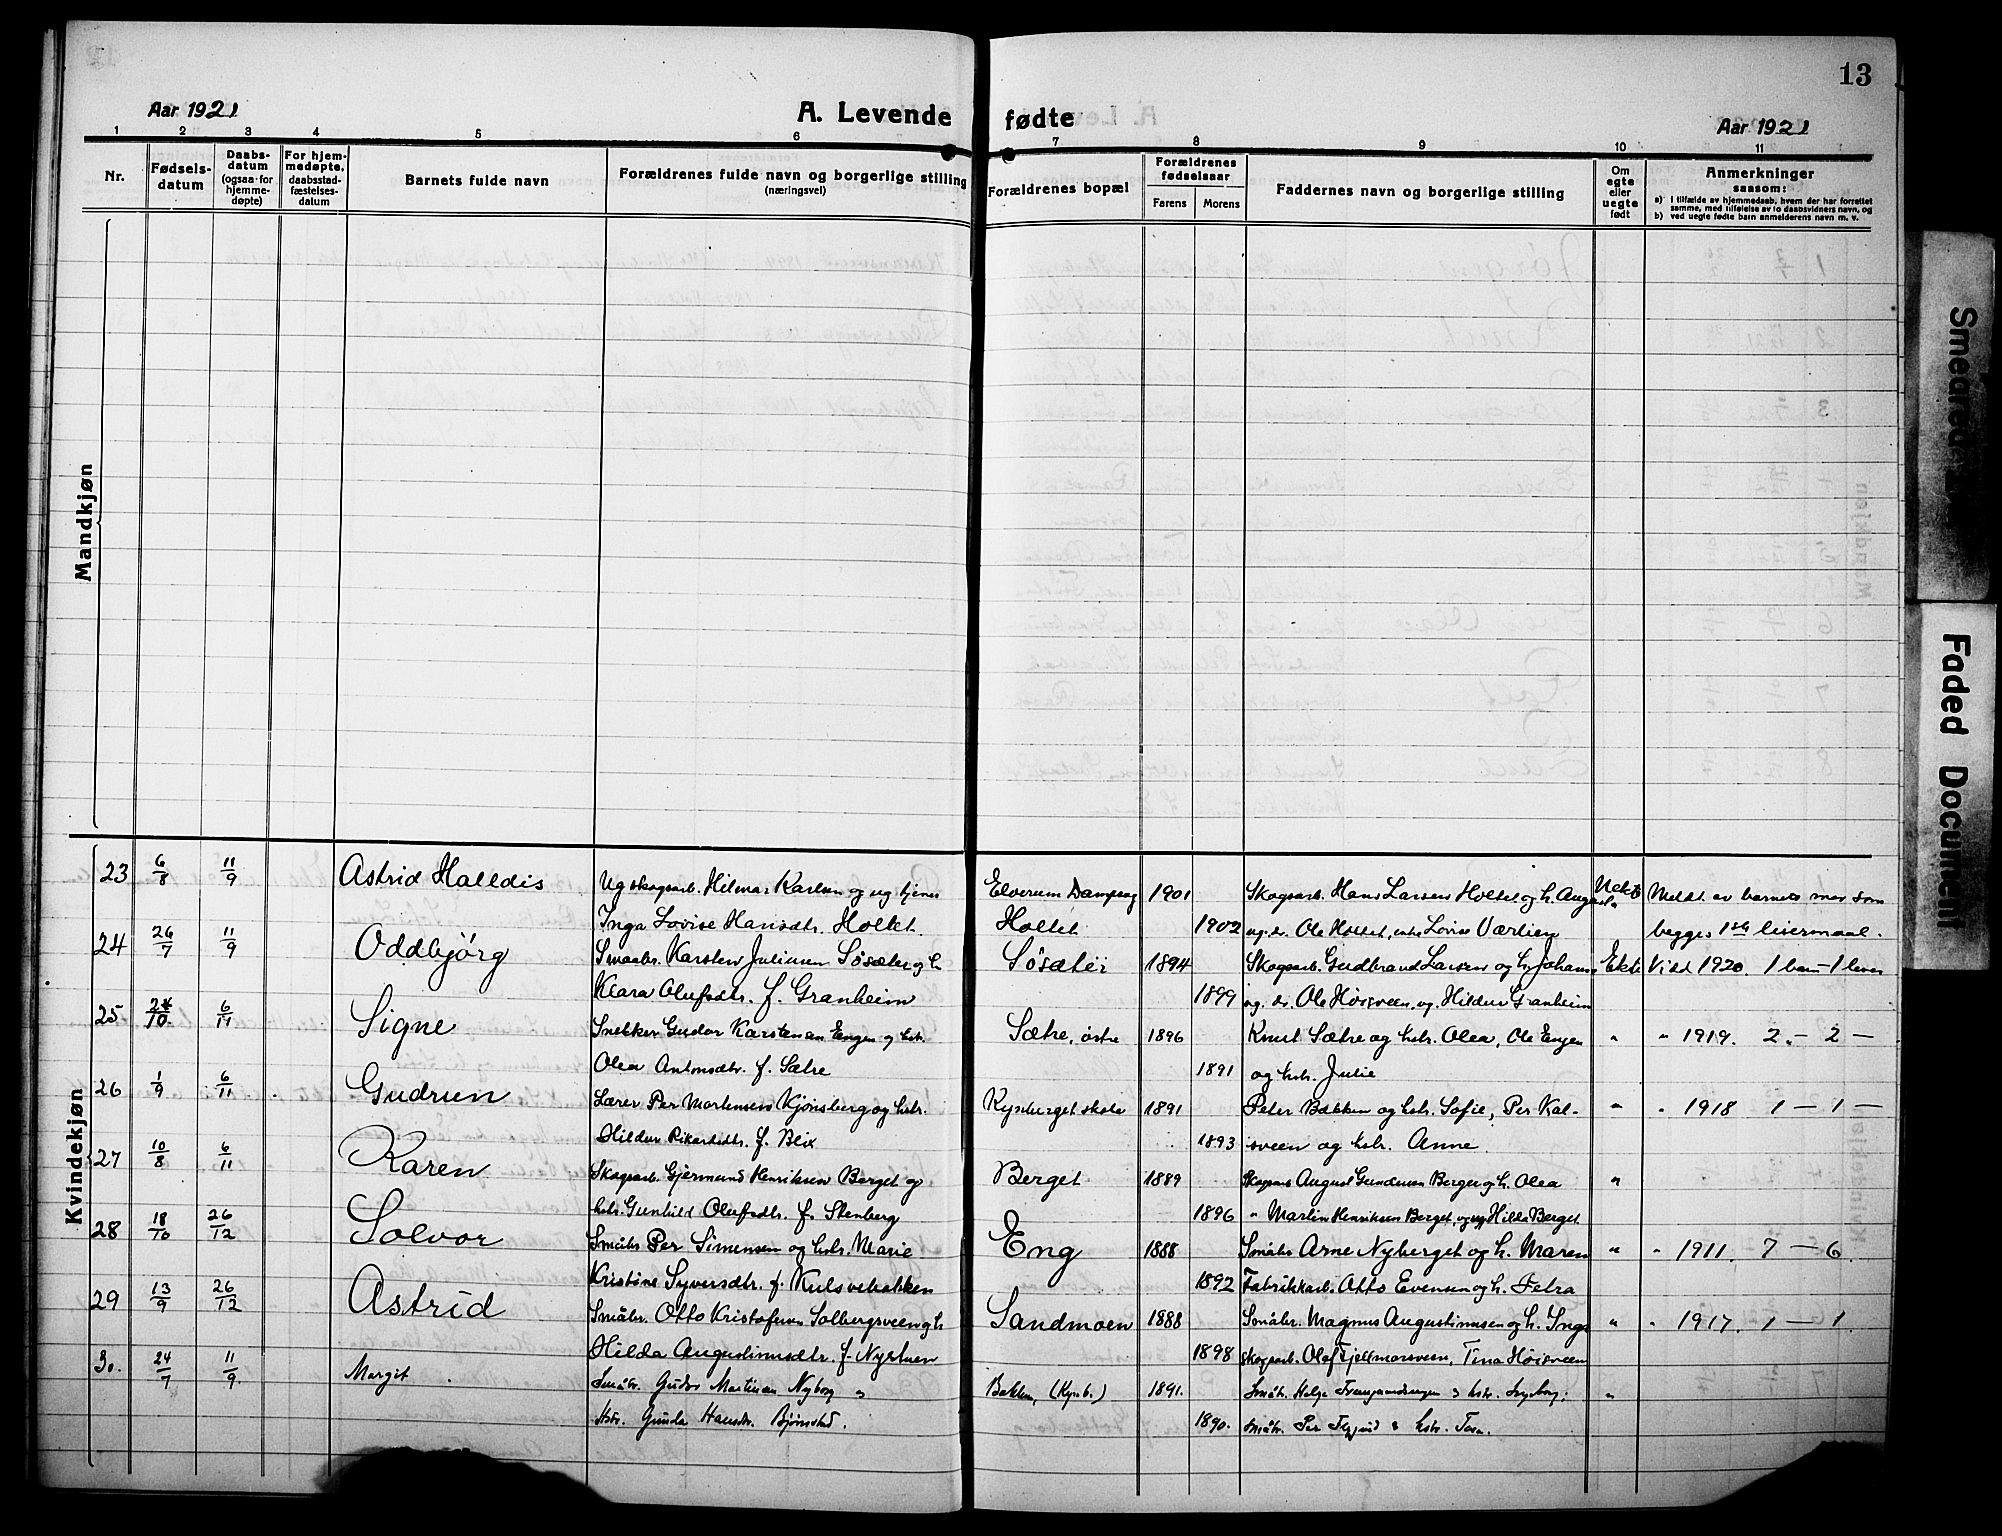 13
Aar 1921 A. Levende fødte Aar 1921
1 2 3 4 5 6 7 8 9 10 11
Nr. Fødsels-datum Daabs-datum (ogsaa for hjemme-døpte) For hjem-medøpte, daabsstad-fæstelses-datum Barnets fulde navn Forældrenes fulde navn og borgerlige stilling (næringsvei) Forældrenes bopæl Forældrenes fødselsaar Farens Morens Faddernes navn og borgerlige stilling Om egte eller uegte født Anmerkninger saasom: a) I tilfælde av hjemmedaab, hvem der har forrettet samme, med tilføielse av to daabsvidners navn, og b) ved uegte fødte barn anmelderens navn m. v.
Mandkjøn
Kvindekjøn
23 6/8 11/9 Astrid Halldis Ug skogsarb. Hilmar Karlsen og ug tjenes Elverum Dampsag 1901 Skogsarb. Hans Larsen Holtet og h. Augusta Uekte Meldt av barnets mor som
Inga Lovise Hansdtr. Holtet. Holtet 1902 ug. dr. Ole Holtet, enke Lovise Værlien begges 1ste leiermaal.
24 26/7 11/9 Oddbjörg Smaabr. Karsten Juliusen Sösæter og h. Sösæter 1894 Skogsarb. Gudbrand Larsen og h. Johanne Ekte Vidd 1920. 1 barn - 1 lever
Klara Olufsdtr. f. Granheim 1899 ug. dr. Ole Høisveen og Hildur Granheim
25 24/10 6/11 Signe Snekker Gudor Karstensen Engen og hstr. Sætre, östre 1896 Knut Sætre og hstr. Olea, Ole Engen " " 1919. 2 " - 2 -
Olea Antonsdtr. f. Sætre 1891 og hstr. Julie
26 1/9 6/11 Gudrun Lærer Per Mortensen Kjönsberg og hstr. Kynberget skole 1891 Peter Bakken og hstr. Sofie, Per Kal- " " 1918 1 - 1 -
Hildur Rikardsdtr. f. Blix 1893 sveen og hstr. Anne
27 10/8 6/11 Karen Skogsarb. Gjermund Henriksen Berget og Berget 1889 Skogsarb August Gundersen Berger og h. Olea "
hstr. Gunhild Olufsdtr. f. Stenberg 1896 " Martin Henriksen Berget, og ug Hilda Berget
28 18/10 26/12 Solvor Småbr Per Simensen og hstr. Marie Eng 1888 Småbr Arne Nyberget og h. Maren " " 1911 7 - 6
Kristine Syversdtr. f. Kulsvebakken 1892 Fabrikkarb. Otto Evensen og h. Petra
29 13/9 26/12 Astrid Småbr. Otto Kristofersen Solbergsveen og h Sandmoen 1888 Småbr. Magnus Augustinussen og h. Inga " " 1917. 1 - 1
Hilda Augustinusdtr. f. Nystuen 1898 skogsarb. Olaf Fjellmorsveen, Tina Høisveen
30. 24/7 11/9 Margit Småbr. Gudor Martinsen Nyborg og Bakken, (Kynb.) 1891. Småbr. Helge og hstr. Ingeborg; "
Hstr. Gunda Hansdtr. Bjørnstad. 1890. småbr. Per & hstr. Tora.
Smeared
Faded Document